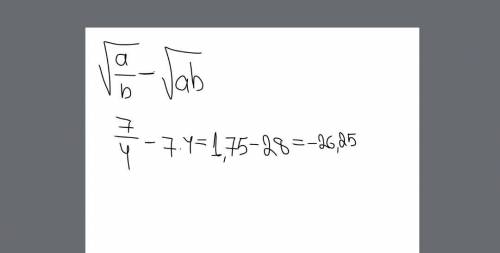 √(a/b) − √(ab)
7/4 − 7·4 = 1,75 − 28 = −26,25